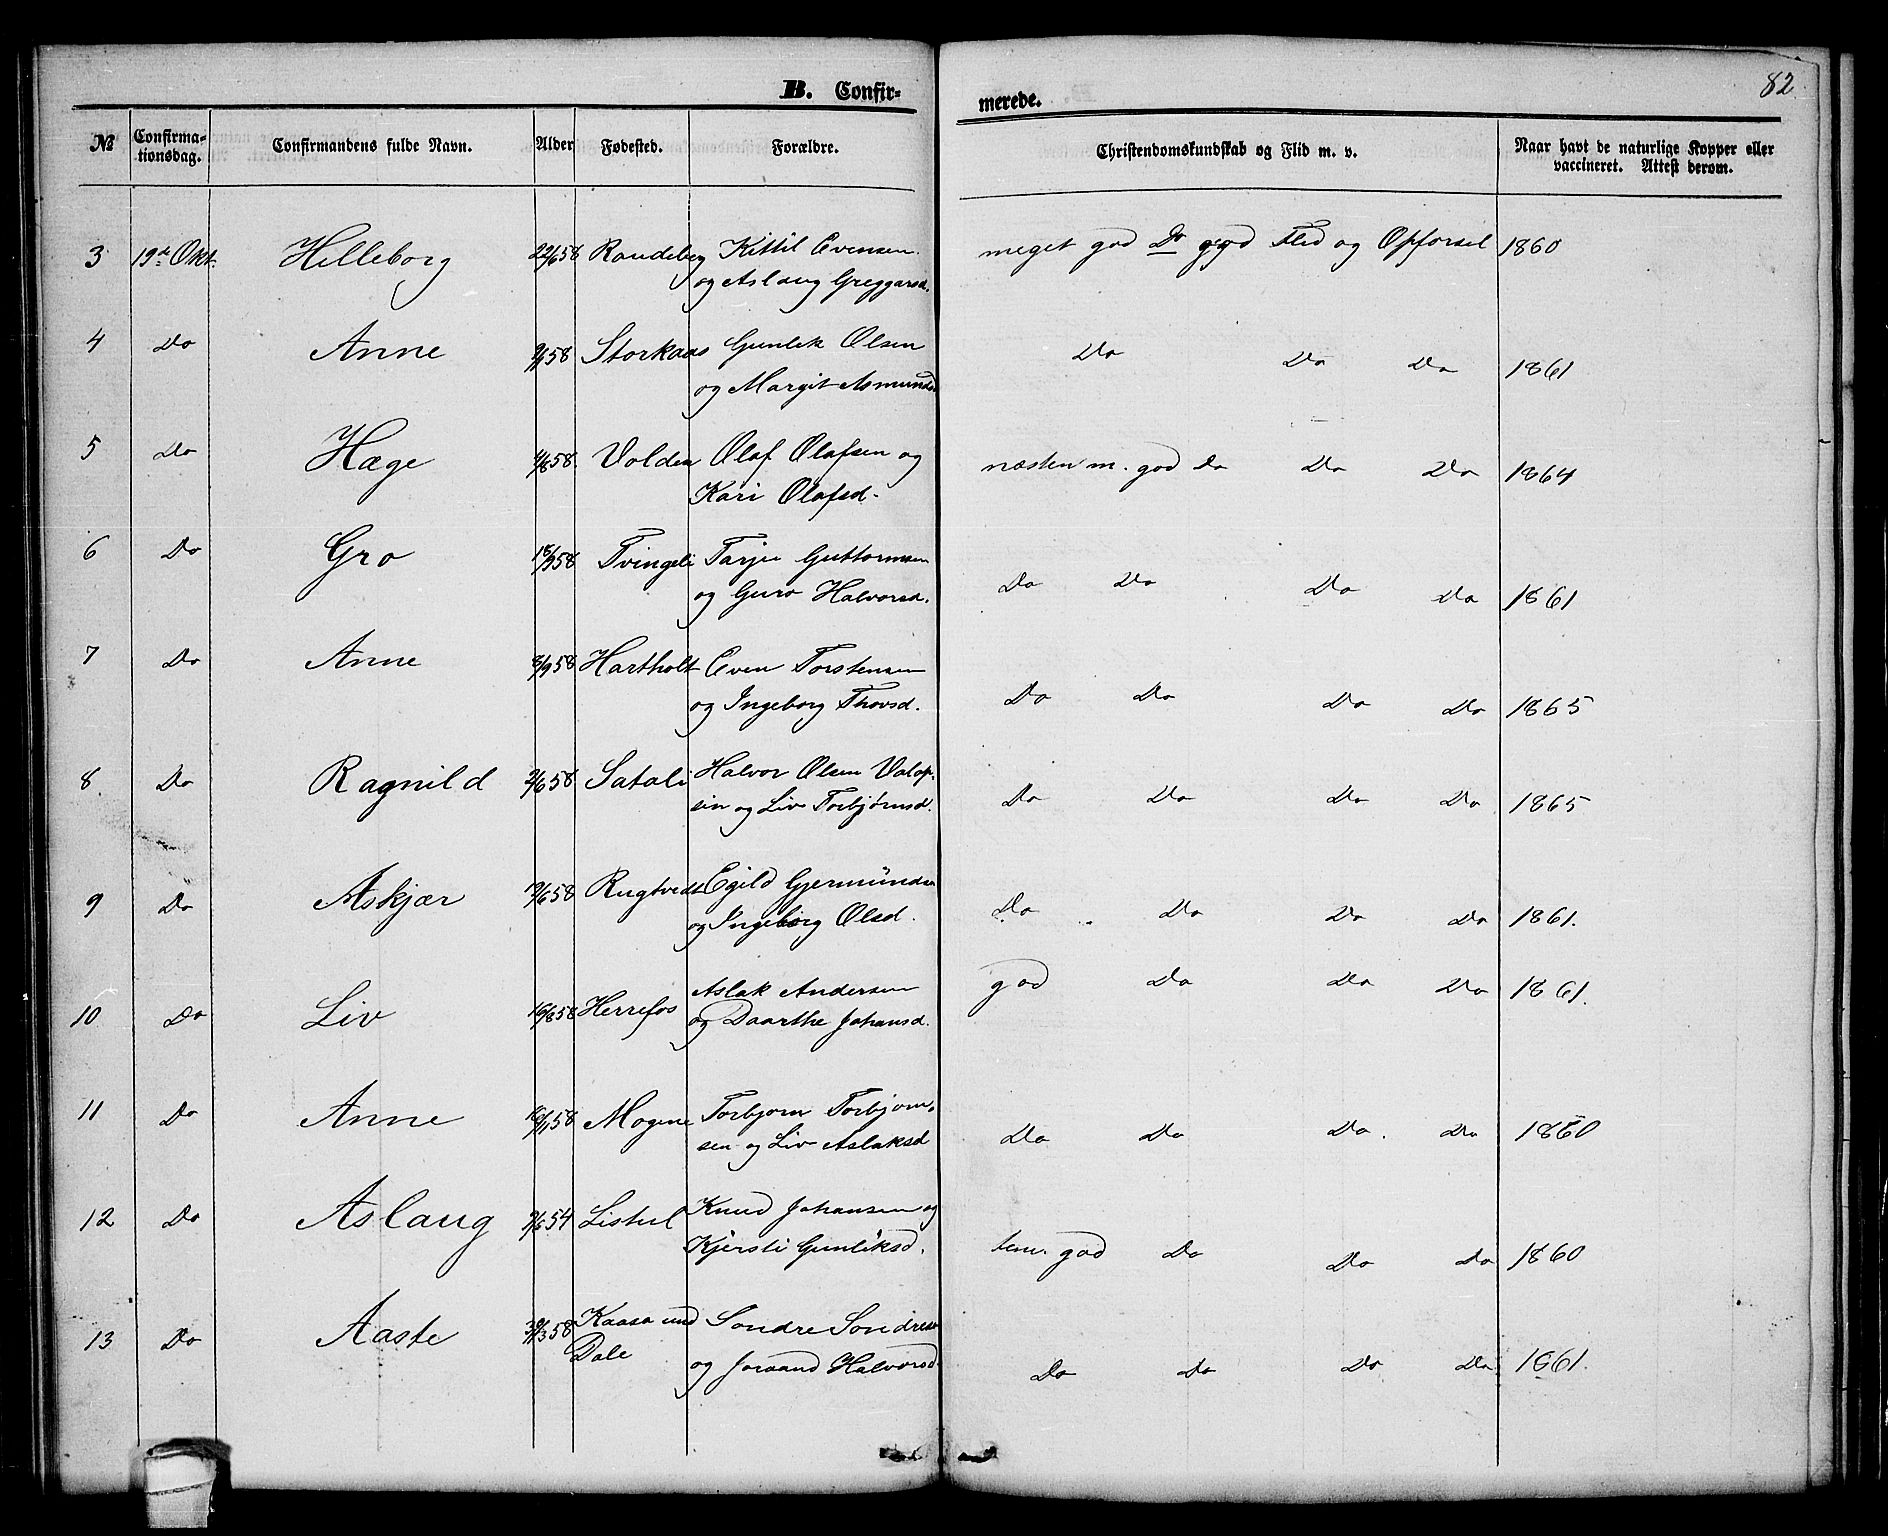 B. Confir-
merede.
82
№
Confirma-
tionsdag.
Confirmandens fulde Navn.
Alder
Fødested.
Forældre.
Christendomskundskab og Flid m. v.
Naar havt de naturlige Kopper eller
vaccineret. Attest derom.
3 19de Okt. Helleborg 22/6 58 Raudeberg Kittil Evensen meget god Do god Flid og Opførsel 1860
og Aslaug Greggarsd.
4 Do Anne 58 Storkaas Gunlek Olsen Do Do Do 1861
og Margit Asmundsd
5 Do Hæge 4/8 58. Volden Olaf Olafsen og næsten m. god Do Do Do 1864
Kari Olafsd.
6 Do Gro 18/9 58 Tvingeli Tarjei Guttormsen Do Do Do Do 1861
og Guro Halvorsd.
7 Do Anne 8/9 58 Hartholt Even Torstensen Do Do Do Do 1865
og Ingeborg Thovsd.
8 Do Ragnild 2/6 58 Satali Halvor Olsen Valop- Do Do Do Do 1865
sin og Liv Torbjørnsd.
9 Do Askjær 19/6 58 Rugtvedt Egild Gjermündsen Do Do Do Do 1861.
og Ingeborg Olsd.
10 Do Liv 16/8 58 Herrefos Aslak Andersen god Do Do Do 1861.
og Daarthe Johansd.
11 Do Anne 58 Mogene Torbjorn Torbjorn- Do Do Do. Do 1860
sen og Liv Aslaksd
12 Do Aslaug 9/6 54 Listul Knud Johansen og tem. god Do Do Do 1860
Kjersti Gunliksd.
13 Do Aaste 30/3 58 Kaasa und Sondre Sondresen Do Do Do Do 1861.
Dale og Joraand Halvorsd.